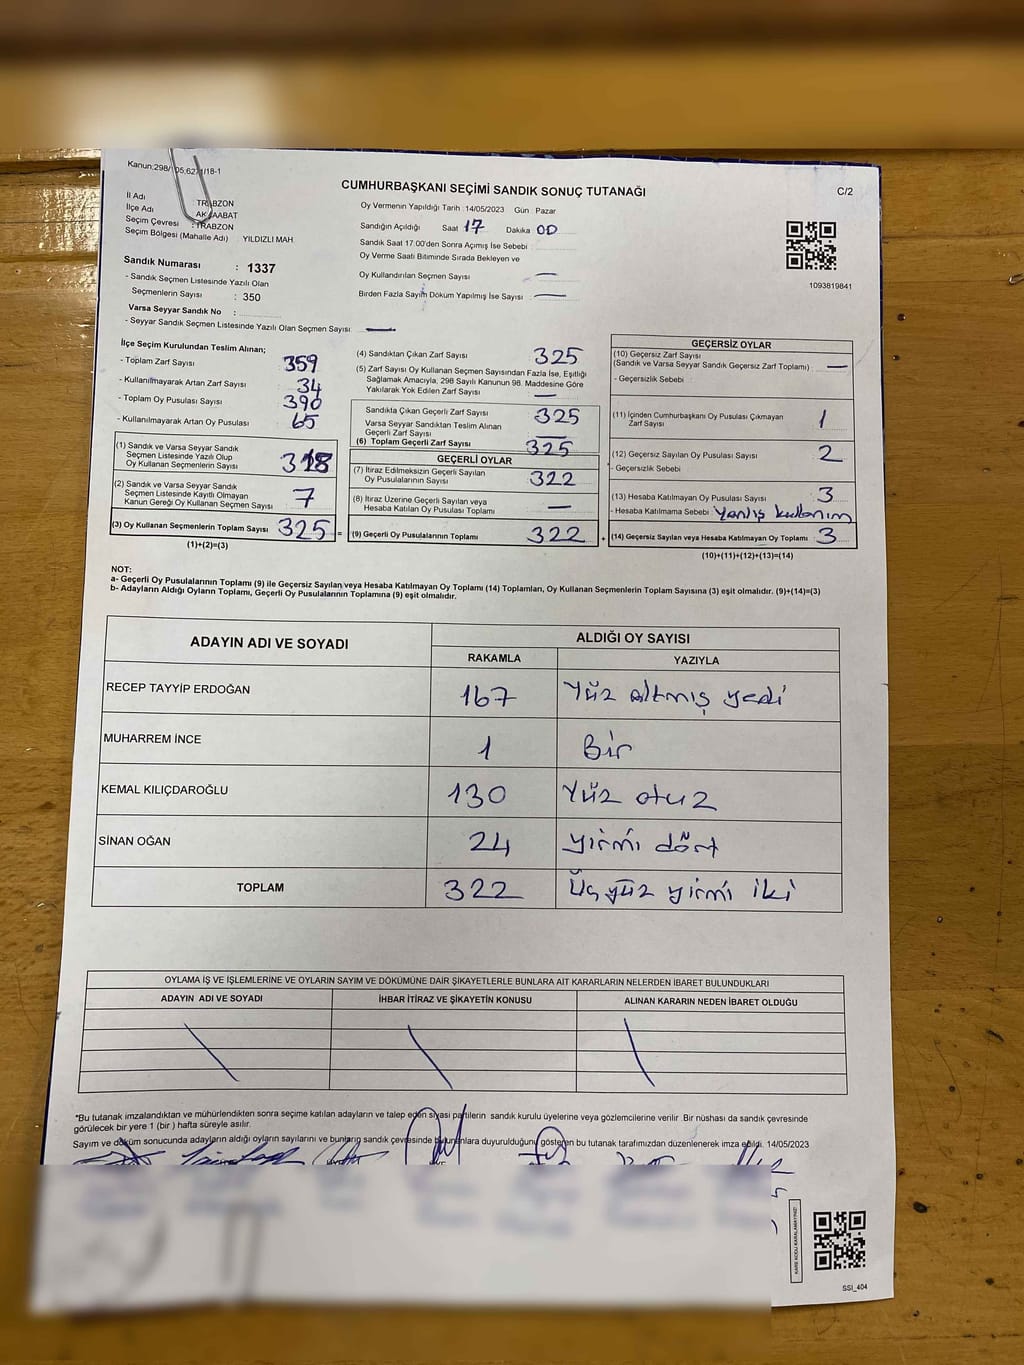 Kanun:298/105,6271/18-1
CUMHURBAŞKANI SEÇİMİ SANDIK SONUÇ TUTANAĞI
C/2
İl Adı TRABZON
İlçe Adı AKÇAABAT
Seçim Çevresi : TRABZON
Seçim Bölgesi (Mahalle Adı) YILDIZLI MAH
Sandık Numarası : 1337
- Sandık Seçmen Listesinde Yazılı Olan
Seçmenlerin Sayısı : 350
Varsa Seyyar Sandık No :
- Seyyar Sandık Seçmen Listesinde Yazılı Olan Seçmen Sayısı —
Oy Vermenin Yapıldığı Tarih 14/05/2023 Gün Pazar
Sandığın Açıldığı Saat 17 Dakika 00
Sandık Saat 17:00'den Sonra Açımış İse Sebebi
Oy Verme Saati Bitiminde Sırada Bekleyen ve
Oy Kullandırılan Seçmen Sayısı —
Birden Fazla Sayım Döküm Yapılmış İse Sayısı : —
1093819841
İlçe Seçim Kurulundan Teslim Alınan;
- Toplam Zarf Sayısı 359
- Kullanılmayarak Artan Zarf Sayısı 34
- Toplam Oy Pusulası Sayısı 390
- Kullanılmayarak Artan Oy Pusulası 65
(1) Sandık ve Varsa Seyyar Sandık
Seçmen Listesinde Yazılı Olup
Oy Kullanan Seçmenlerin Sayısı 318
(2) Sandık ve Varsa Seyyar Sandık
Seçmen Listesinde Kayıtlı Olmayan
Kanun Gereği Oy Kullanan Seçmen Sayısı 7
(3) Oy Kullanan Seçmenlerin Toplam Sayısı 325 =
(1)+(2)=(3)
(4) Sandıktan Çıkan Zarf Sayısı 325
(5) Zarf Sayısı Oy Kullanan Seçmen Sayısından Fazla İse, Eşitliği
Sağlamak Amacıyla, 298 Sayılı Kanunun 98. Maddesine Göre
Yakılarak Yok Edilen Zarf Sayısı —
Sandıkta Çıkan Geçerli Zarf Sayısı 325
Varsa Seyyar Sandıktan Teslim Alınan
Geçerli Zarf Sayısı —
(6) Toplam Geçerli Zarf Sayısı 325
GEÇERLİ OYLAR
(7) İtiraz Edilmeksizin Geçerli Sayılan
Oy Pusulalarının Sayısı 322
(8) İtiraz Üzerine Geçerli Sayılan veya
Hesaba Katılan Oy Pusulası Toplamı —
(9) Geçerli Oy Pusulalarının Toplamı 322 +
GEÇERSİZ OYLAR
(10) Geçersiz Zarf Sayısı
(Sandık ve Varsa Seyyar Sandık Geçersiz Zarf Toplamı) —
- Geçersizlik Sebebi :
(11) İçinden Cumhurbaşkanı Oy Pusulası Çıkmayan
Zarf Sayısı 1
(12) Geçersiz Sayılan Oy Pusulası Sayısı 2
- Geçersizlik Sebebi :
(13) Hesaba Katılmayan Oy Pusulası Sayısı 3
- Hesaba Katılmama Sebebi : Yanlış kullanım
(14) Geçersiz Sayılan veya Hesaba Katılmayan Oy Toplamı 3
(10)+(11)+(12)+(13)=(14)
NOT:
a- Geçerli Oy Pusulalarının Toplamı (9) ile Geçersiz Sayılan veya Hesaba Katılmayan Oy Toplamı (14) Toplamları, Oy Kullanan Seçmenlerin Toplam Sayısına (3) eşit olmalıdır. (9)+(14)=(3)
b- Adayların Aldığı Oyların Toplamı, Geçerli Oy Pusulalarının Toplamına (9) eşit olmalıdır.
ADAYIN ADI VE SOYADI ALDIĞI OY SAYISI
RAKAMLA YAZIYLA
RECEP TAYYİP ERDOĞAN 167 Yüz altmış yedi
MUHARREM İNCE 1 Bir
KEMAL KILIÇDAROĞLU 130 Yüz otuz
SİNAN OĞAN 24 yirmi dört
TOPLAM 322 Üç yüz yirmi iki
OYLAMA İŞ VE İŞLEMLERİNE VE OYLARIN SAYIM VE DÖKÜMÜNE DAİR ŞİKAYETLERLE BUNLARA AİT KARARLARIN NELERDEN İBARET BULUNDUKLARI
ADAYIN ADI VE SOYADI İHBAR İTİRAZ VE ŞİKAYETİN KONUSU ALINAN KARARIN NEDEN İBARET OLDUĞU
*Bu tutanak imzalandıktan ve mühürlendikten sonra seçime katılan adayların ve talep eden siyasi partilerin sandık kurulu üyelerine veya gözlemcilerine verilir. Bir nüshası da sandık çevresinde
görülecek bir yere 1 (bir ) hafta süreyle asılır.
Sayım ve döküm sonucunda adayların aldığı oyların sayılarını ve bunların sandık çevresinde bulunanlara duyurulduğunu gösteren bu tutanak tarafımızdan düzenlenerek imza edildi. 14/05/2023
KARE KODU KARALAMAYINIZ!
SSI_404